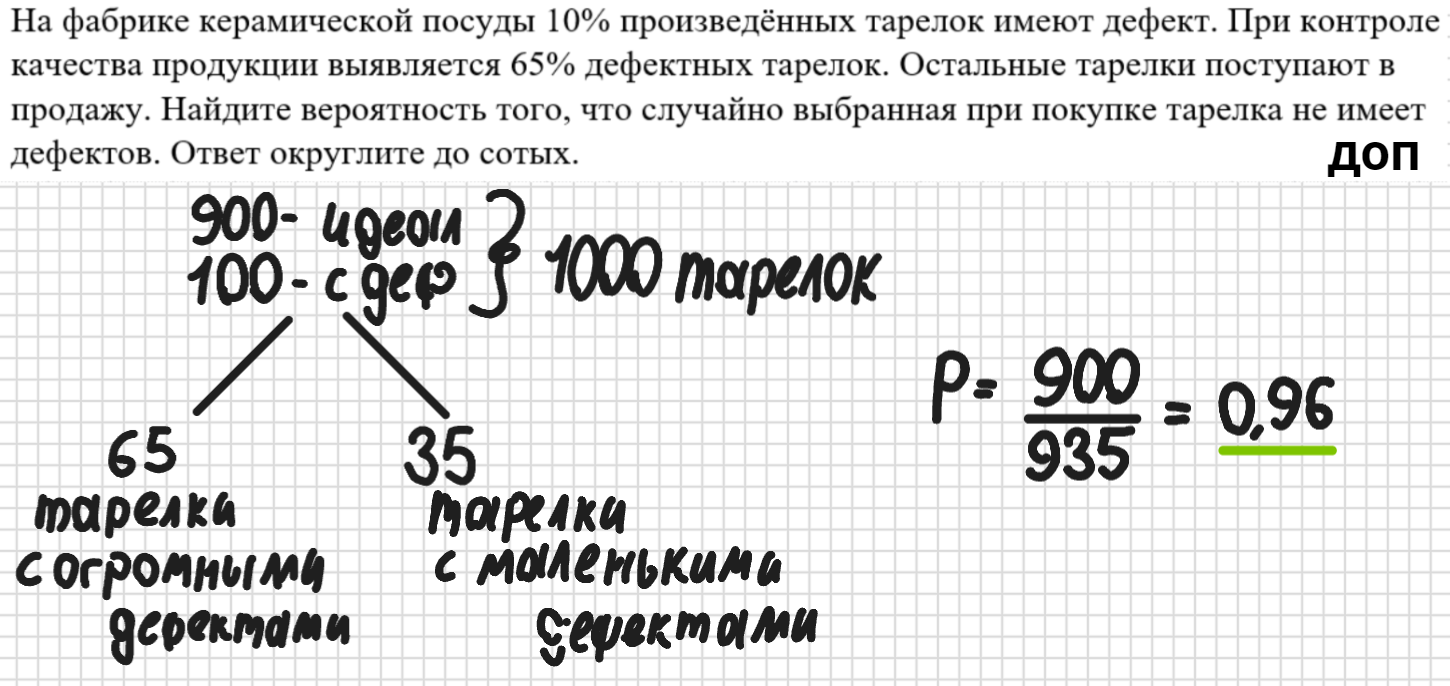 На фабрике керамической посуды 10% произведённых тарелок имеют дефект. При контроле
качества продукции выявляется 65% дефектных тарелок. Остальные тарелки поступают в
продажу. Найдите вероятность того, что случайно выбранная при покупке тарелка не имеет
дефектов. Ответ округлите до сотых.
доп
900- идеал
100- с деф } 1000 тарелок
P = 900/935 = 0,96
65 35
тарелки тарелки
с огромными с маленькими
дефектами дефектами